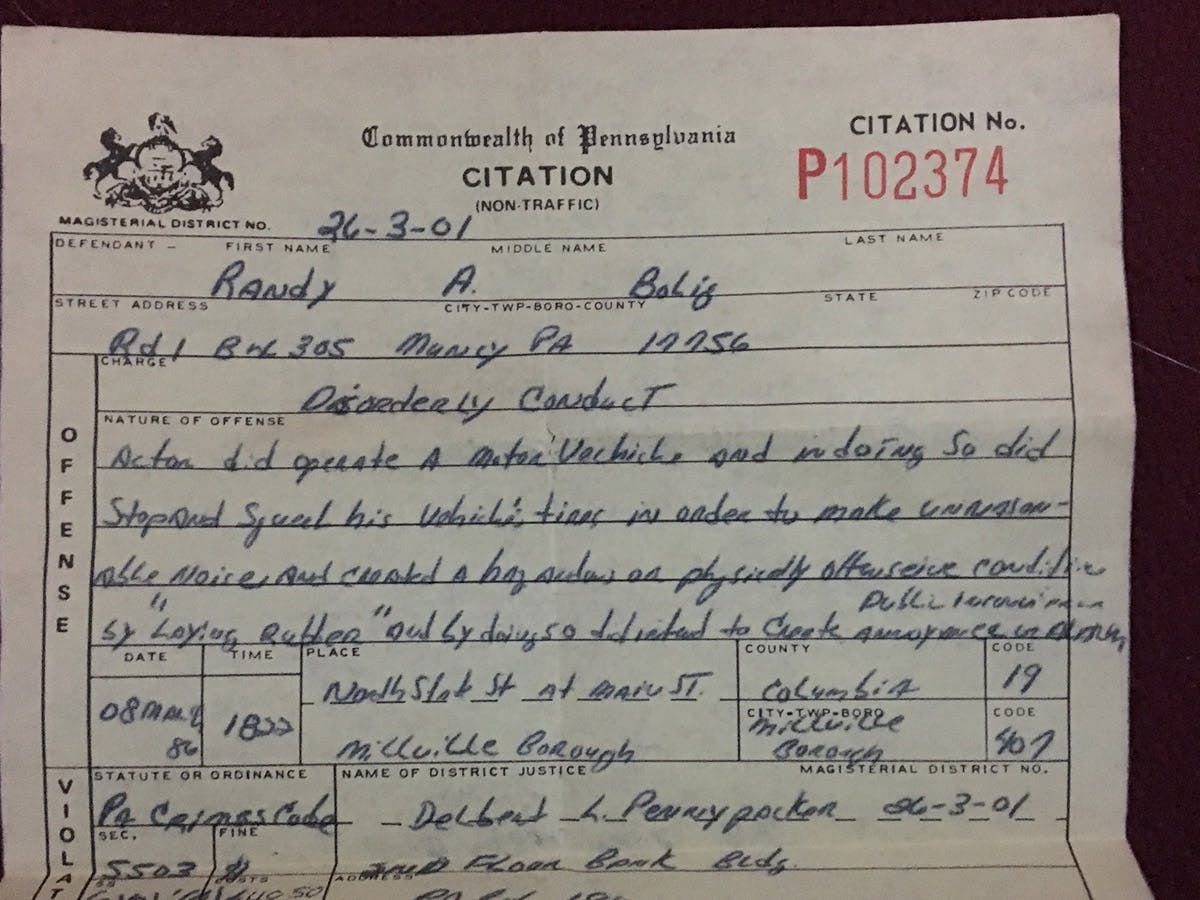 Commonwealth of Pennsylvania
CITATION
(NON-TRAFFIC)
CITATION No.
P102374
MAGISTERIAL DISTRICT NO. 26-3-01
DEFENDANT – FIRST NAME MIDDLE NAME LAST NAME
Randy A. Bolig
STREET ADDRESS CITY-TWP-BORO-COUNTY STATE ZIP CODE
Rd 1 Box 305 Muncy PA 17756
CHARGE
Disorderly Conduct
NATURE OF OFFENSE
OFFENSE
Actor did operate A motor Vechicle and in doing So did
Stop and Squeel his Vehicle's tires in order to make unreason-
able Noise, and created a hazardous or physically offenseive condition
Public Inconvience
by "Laying Rubber" and by doing so did intend to Create annoyance or
DATE TIME PLACE COUNTY CODE
North State St at Main ST. Columbia 19
CITY-TWP-BORO CODE
08 86 1822 Millville Borough Millville Borough 407
STATUTE OR ORDINANCE NAME OF DISTRICT JUSTICE MAGISTERIAL DISTRICT NO.
VIOLAT
PA Crimes Code Delbert L. Pennypacker 26-3-01
SEC. FINE
5503 $ 2ND Floor Bank Bldg.
COSTS ADDRESS
40.50